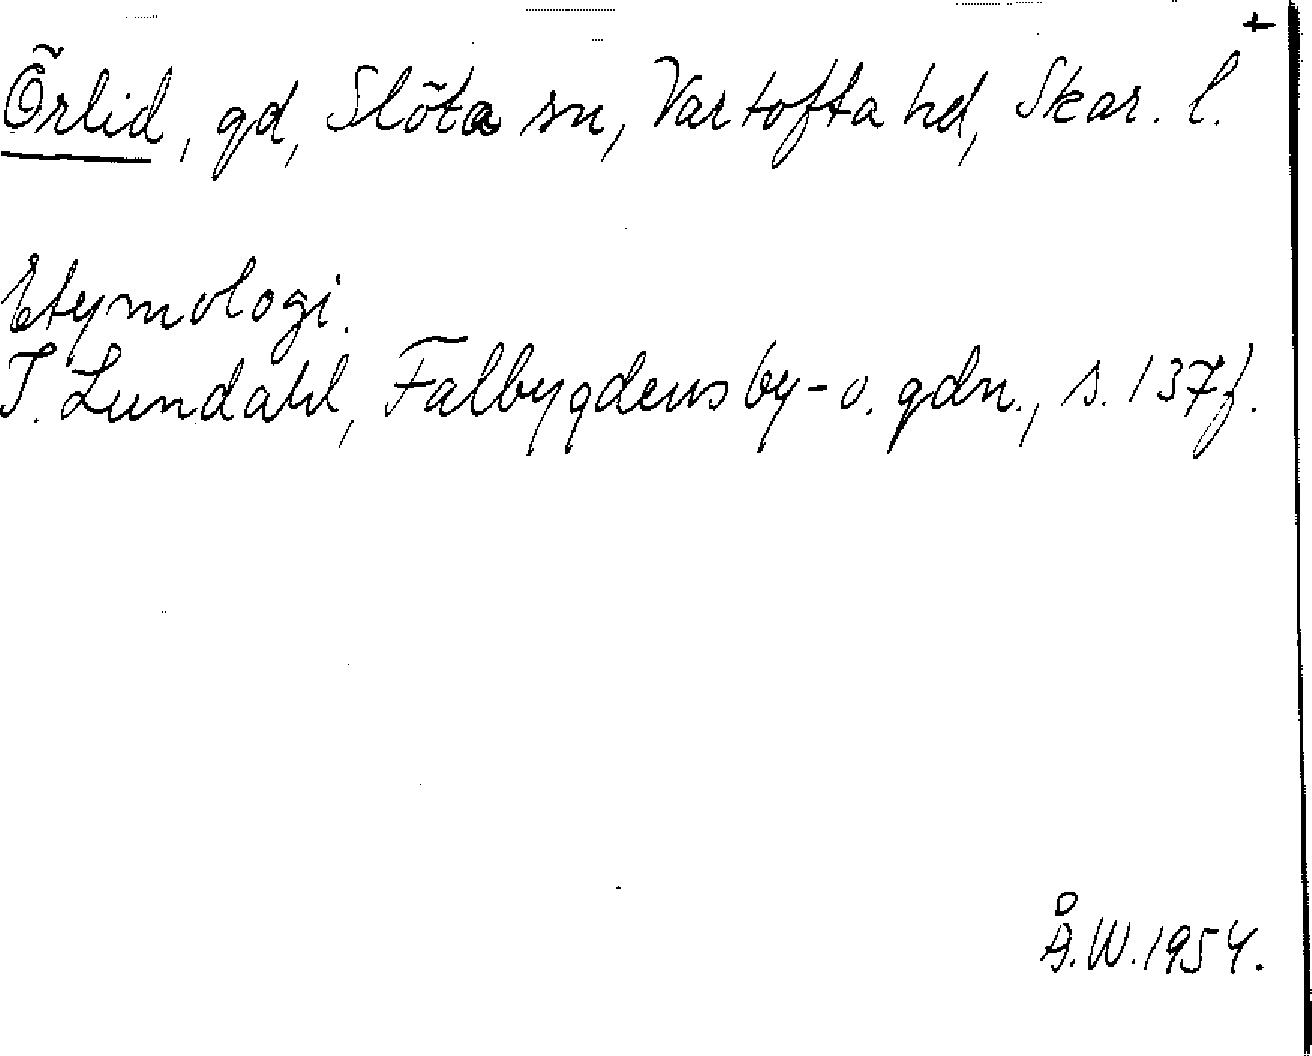 +
Örlid, gd, Slöta sn, Vartofta hd, Skar. l.
Etymologi.
I. Lundahl, Falbygdens by- o. gdn., s. 137 f.
Å.W. 1954.